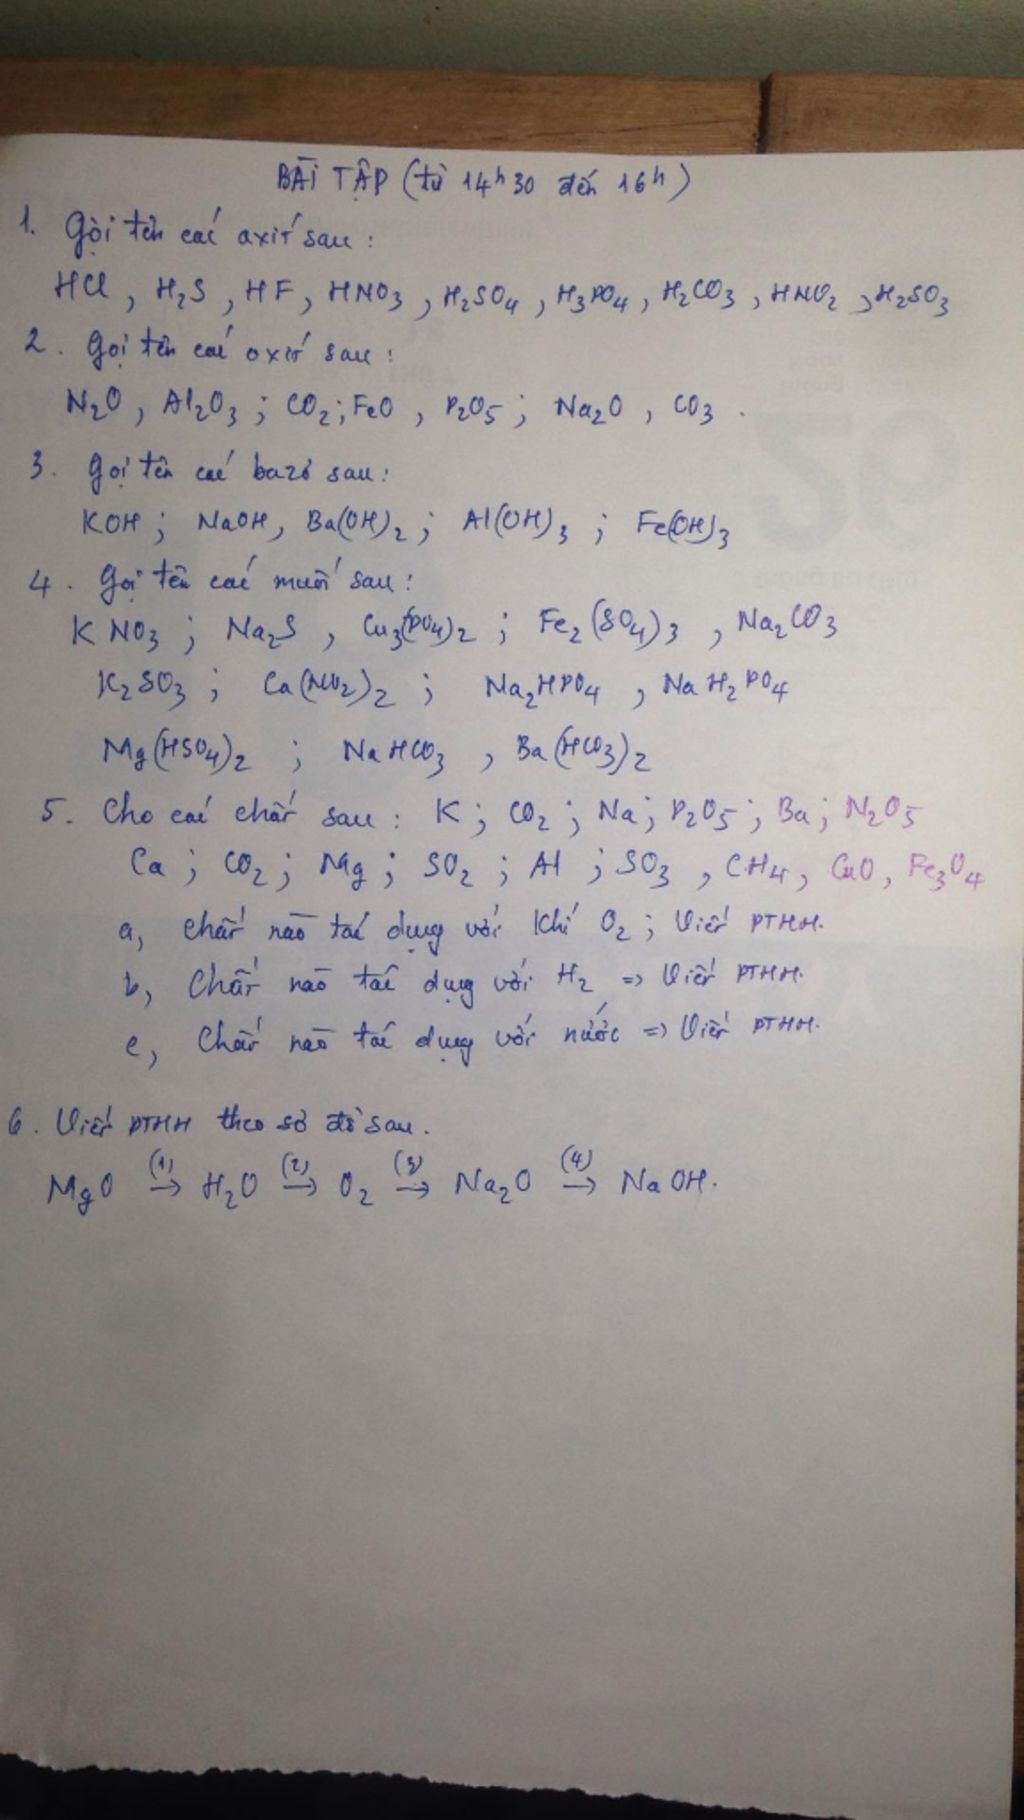 BÀI TẬP (từ 14h30 đến 16h)
1. Gọi tên các axit sau:
HCl, H₂S, HF, HNO₃, H₂SO₄, H₃PO₄, H₂CO₃, HNO₂, H₂SO₃
2. Gọi tên các oxit sau:
N₂O, Al₂O₃; CO₂; FeO, P₂O₅; Na₂O, CO₃.
3. Gọi tên các bazơ sau:
KOH; NaOH, Ba(OH)₂; Al(OH)₃; Fe(OH)₃
4. Gọi tên các muối sau:
KNO₃; Na₂S, Cu₃(PO₄)₂; Fe₂(SO₄)₃, Na₂CO₃
K₂SO₃; Ca(NO₂)₂; Na₂HPO₄, NaH₂PO₄
Mg(HSO₄)₂; NaHCO₃, Ba(HCO₃)₂
5. Cho các chất sau: K; CO₂; Na; P₂O₅; Ba; N₂O₅
Ca; CO₂; Mg; SO₂; Al; SO₃, CH₄, CuO, Fe₃O₄
a, chất nào tác dụng với khí O₂; Viết PTHH.
b, Chất nào tác dụng với H₂ => Viết PTHH.
c, Chất nào tác dụng với nước => Viết PTHH.
6. Viết PTHH theo sơ đồ sau.
MgO (1)→ H₂O (2)→ O₂ (3)→ Na₂O (4)→ NaOH.